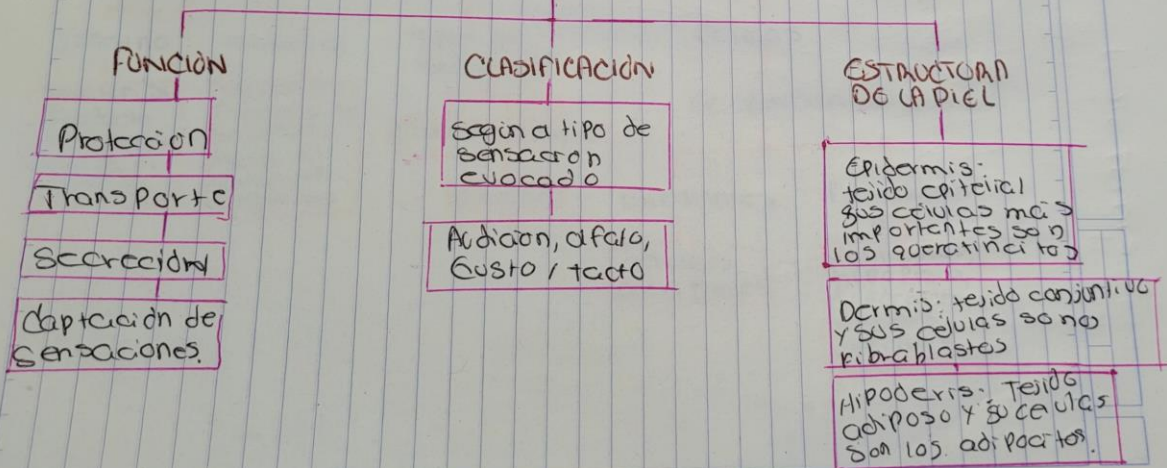 FUNCIÓN
Protección
Transporte
Secreción
Captación de
sensaciones.
CLASIFICACIÓN
según a tipo de
sensación
evocado
Audicion, olfato,
Gusto / tacto
ESTRUCTURA
DE LA PIEL
Epidermis:
tejido epitelial
sus celulas mas
importentes son
los queratincitos
Dermis: tejido conjuntivo
y sus celulas son os
fibrablastos
Hipoderis. Tejido
adiposo y su celulas
son los adipocitos.